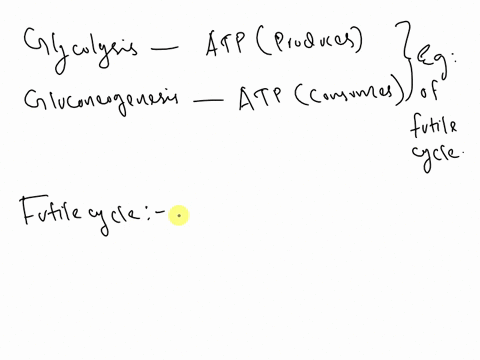 Glycolysis — ATP (Produces)
Gluconeogenesis — ATP (Consumes)
Eg:
of
futile
cycle.
Futile cycle:-